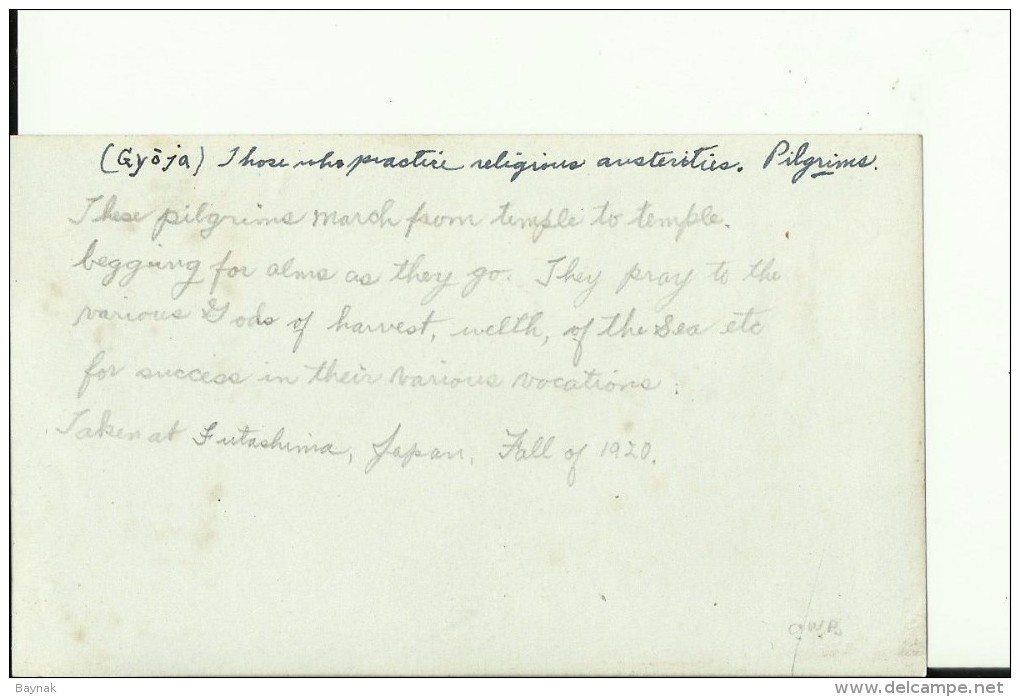 (Gyōja) Those who practice religious austerities. Pilgrims.
These pilgrims march from temple to temple.
begging for alms as they go. They pray to the
various Gods of harvest, welth, of the Sea etc
for success in their various vocations.
Taken at Futashima, Japan, Fall of 1920.
Baynak
www.delcampe.net